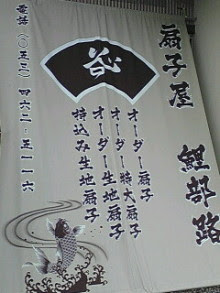 扇子屋 鯉部路
オーダー扇子
オーダー特大扇子
オーダー生地扇子
持込み生地扇子
電話(〇五三)四六二-五一一六